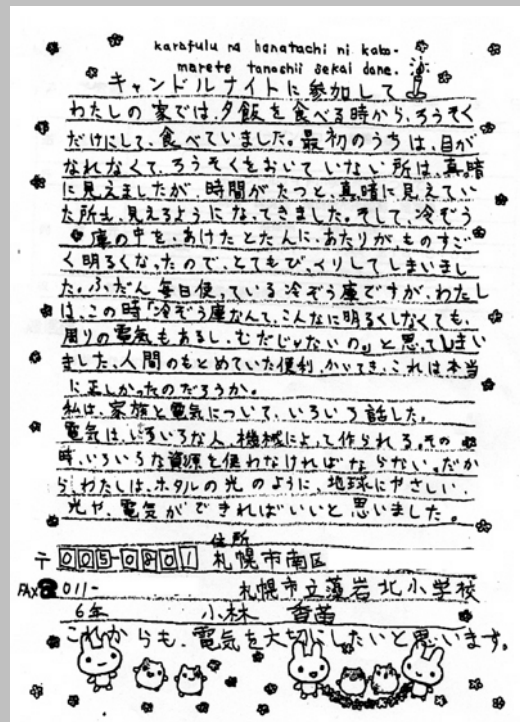 karafulu na hanatachi ni kako-
marete tanoshii sekai dane.
キャンドルナイトに参加して
わたしの家では、夕飯を食べる時から、ろうそく
だけにして、食べていました。最初のうちは、目が
なれなくて、ろうそくをおいていない所は、真暗
に見えましたが、時間がたつと、真暗に見えてい
た所も、見えるようになってきました。そして、冷ぞう
庫の中を、あけたとたんに、あたりが、ものすご
く明るくなったので、とてもびっくりしてしまいまし
た。ふだん毎日使っている冷ぞう庫ですが、わたし
は、この時「冷ぞう庫なんて、こんなに明るくしなくても、
周りの電気もあるし、むだじゃないの。」と思ってしまい
ました。人間のもとめていた便利、かいてき、これは本当
に正しかったのだろうか。
私は、家族と電気について、いろいろ話した。
電気は、いろいろな人、機械によって作られる。その
時、いろいろな資源を使わなければならない。だか
ら、わたしは、ホタルの光のように、地球にやさしい、
光や、電気ができればいいと思いました。
住所
〒005-0801 札幌市南区
FAX☎011- 札幌市立藻岩北小学校
6年 小林 香苗
これからも、電気を大切にしたいと思います。